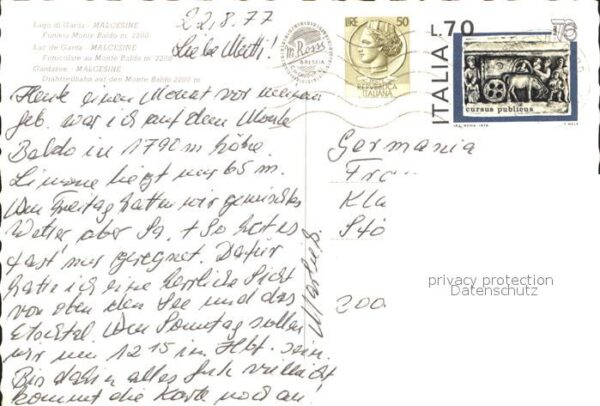 Lago di Garda - MALCESINE
Funivia Monte Baldo m. 2200
Lac de Garda - MALCESINE
Funiculaire au Monte Baldo m. 2200
Gardasee - MALCESINE
Drahtseilbahn auf den Monte Baldo 2200 m
22.8.77
Liebe Mutti!
Heute einen Monat vor meinem
Geb. war ich auf dem Monte
Baldo in 1790 m Höhe.
Limone liegt nur 65 m.
Am Freitag hatten wir gemischtes
Wetter aber Sa. + So hat es
fast nur geregnet. Dafür
hatte ich eine herrliche Sicht
von oben den See und das
Etschtal. Am Sonntag sollen
wir um 12 15 im Hbf. sein.
Bis dahin alles Gute vielleicht
kommt die Karte noch an!
m. Rossi
BRESCIA
LIRE 50
REPUBBLICA
ITALIANA
ITALIA L.70
cursus publicus
Germania
Fra
Kla
Stö
200
privacy protection
Datenschutz